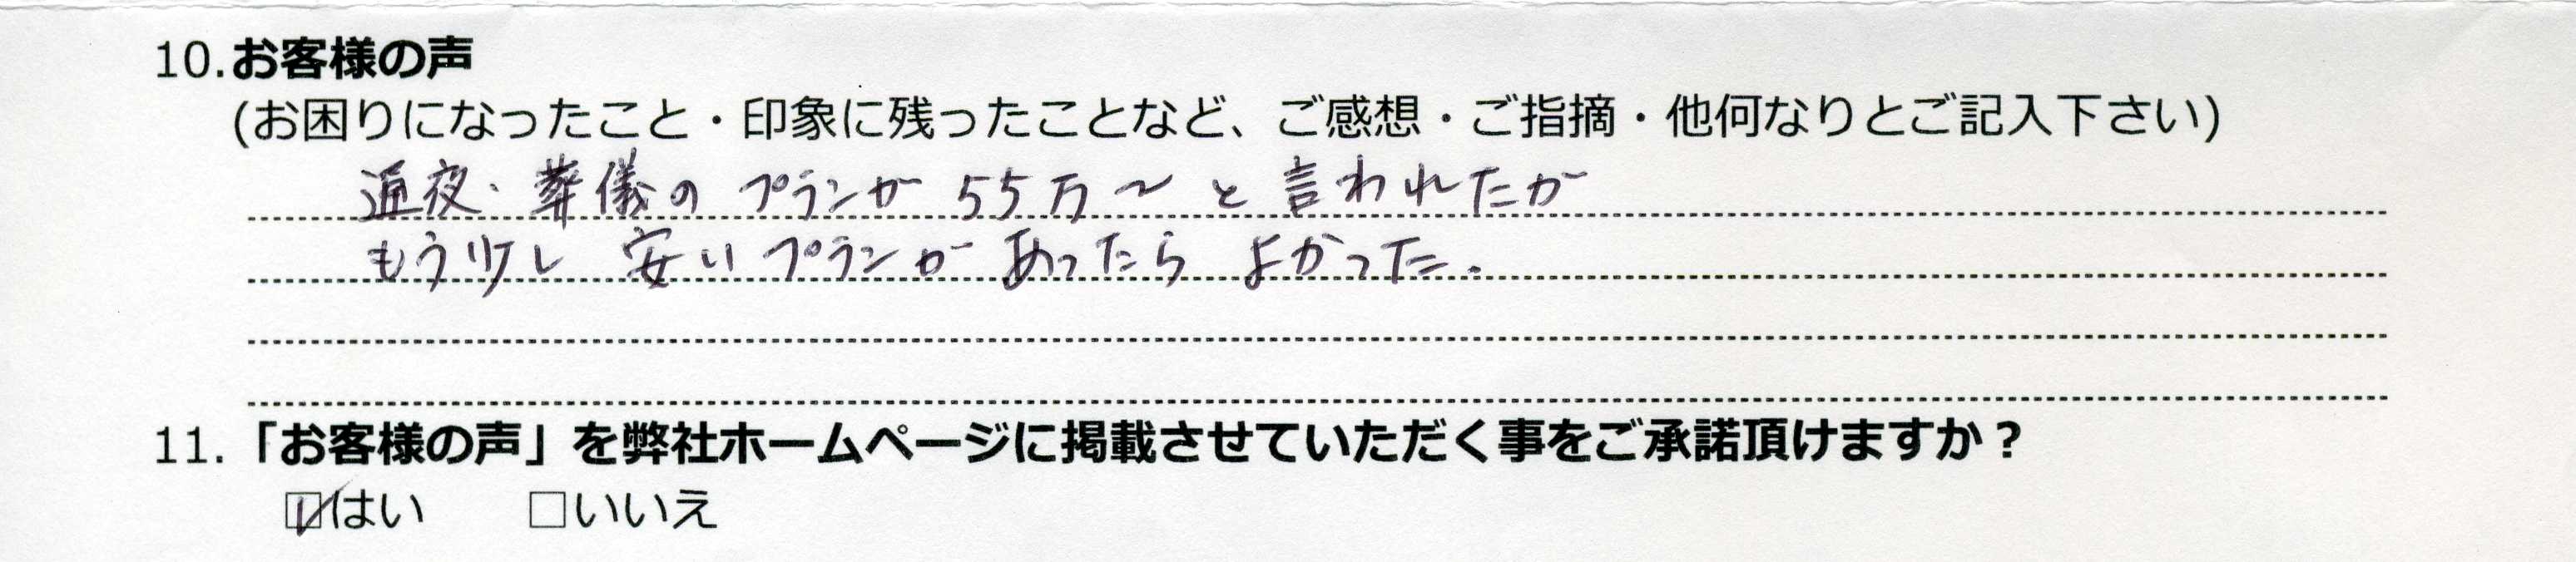 10.お客様の声
(お困りになったこと・印象に残ったことなど、ご感想・ご指摘・他何なりとご記入下さい)
通夜・葬儀の プランが 55万〜 と 言われたが
もう少し 安い プランが あったら よかった.
11.「お客様の声」を弊社ホームページに掲載させていただく事をご承諾頂けますか？
☑はい □いいえ